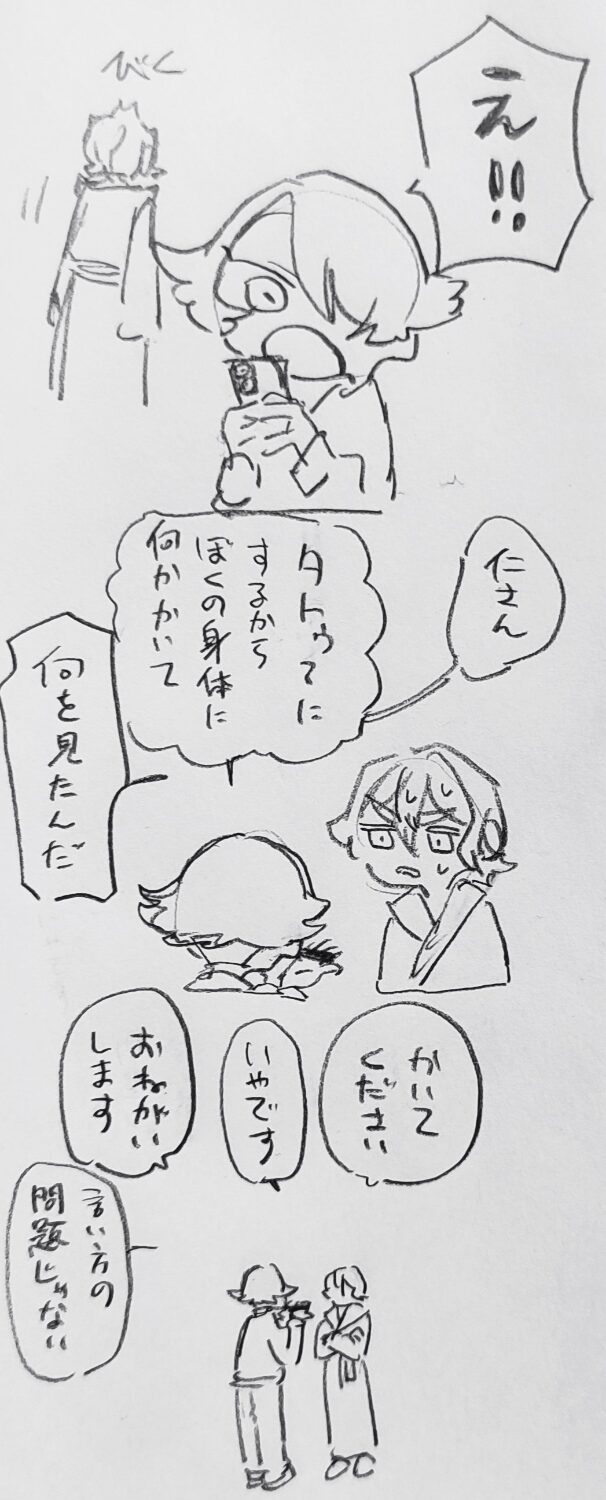 え!!
びく
仁さん
タトゥーに
するから
ぼくの身体に
何かかいて
何を見たんだ
かいて
ください
いやです
おねがい
します
言い方の
問題じゃない